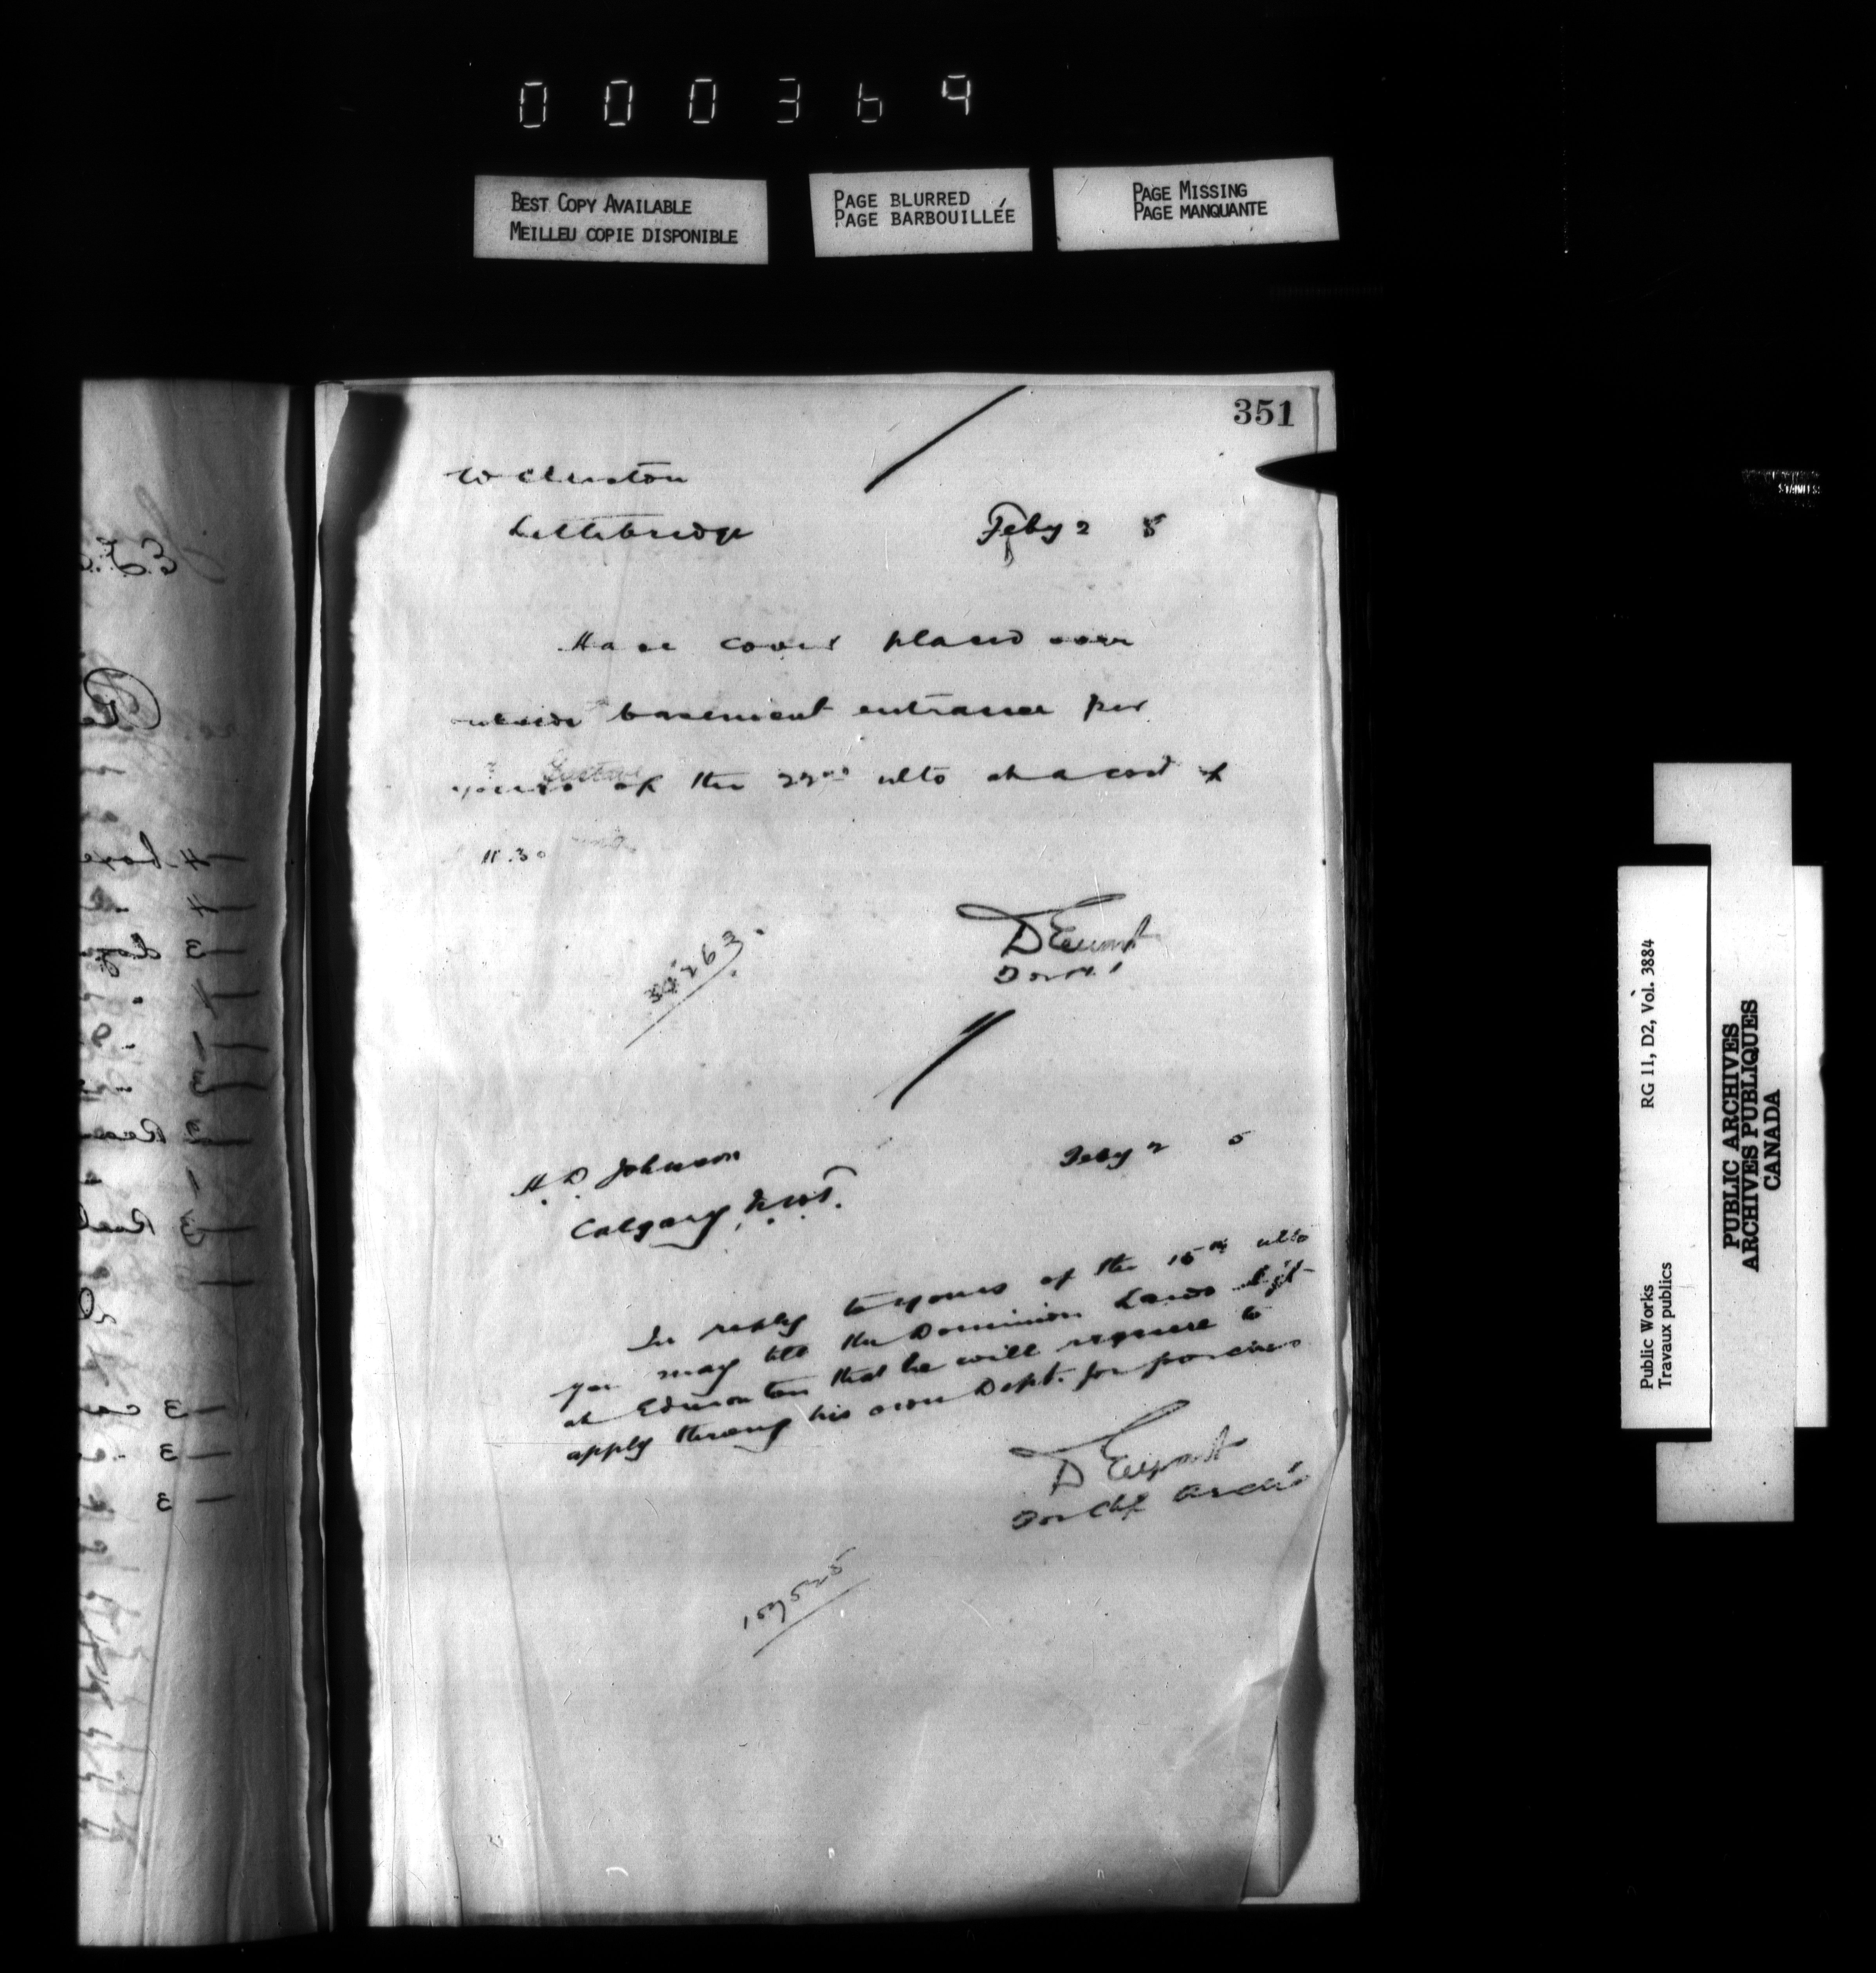 000369
BEST COPY AVAILABLE
MEILLEU COPIE DISPONIBLE
PAGE BLURRED
PAGE BARBOUILLÉE
PAGE MISSING
PAGE MANQUANTE
351
Lethbridge Feby 2
Have cover placed over
outside basement entrance per
yours of the 22nd ulto at a cost of
11.30
D Ewart
H D Johnson Feby 2 5
Calgary, N.W.T.
In reply to yours of the 15th ulto
you may tell the Dominion Lands Agt
at Edmonton that he will require to
apply through his own Dept. for
D Ewart
For Chf Archt
Public Works RG 11, D2, Vol. 3884
Travaux publics
PUBLIC ARCHIVES
ARCHIVES PUBLIQUES
CANADA